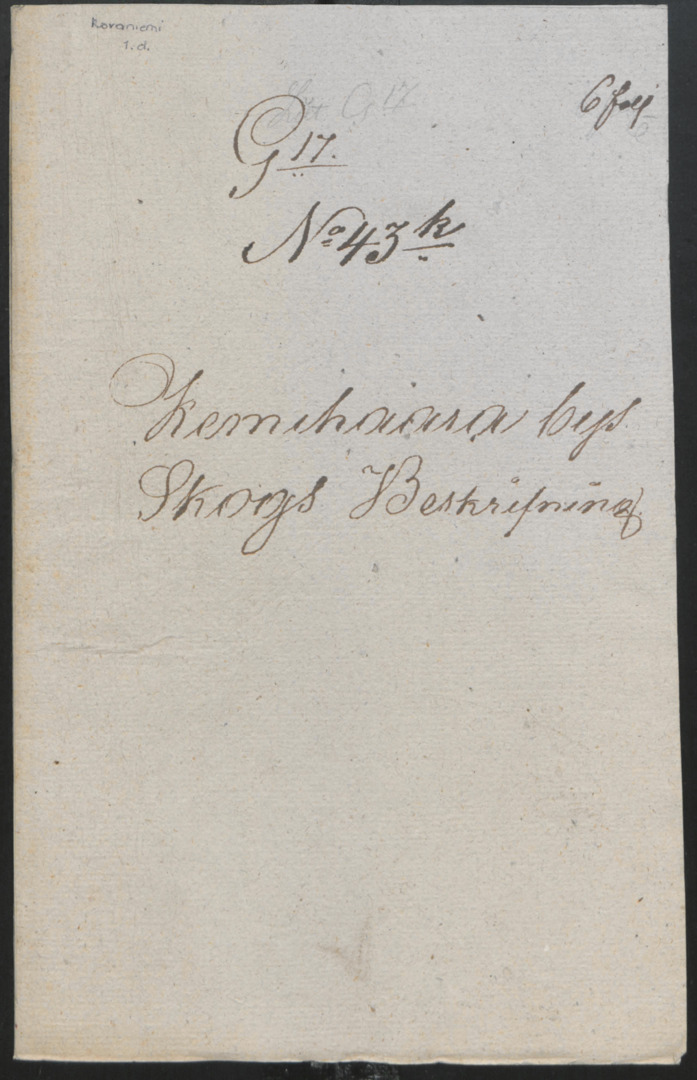 Rovaniemi
1.d.
Litt G 17
6 folj
6
G 17.
No 43 k
Kemihaara bys
Skogs Beskrifning